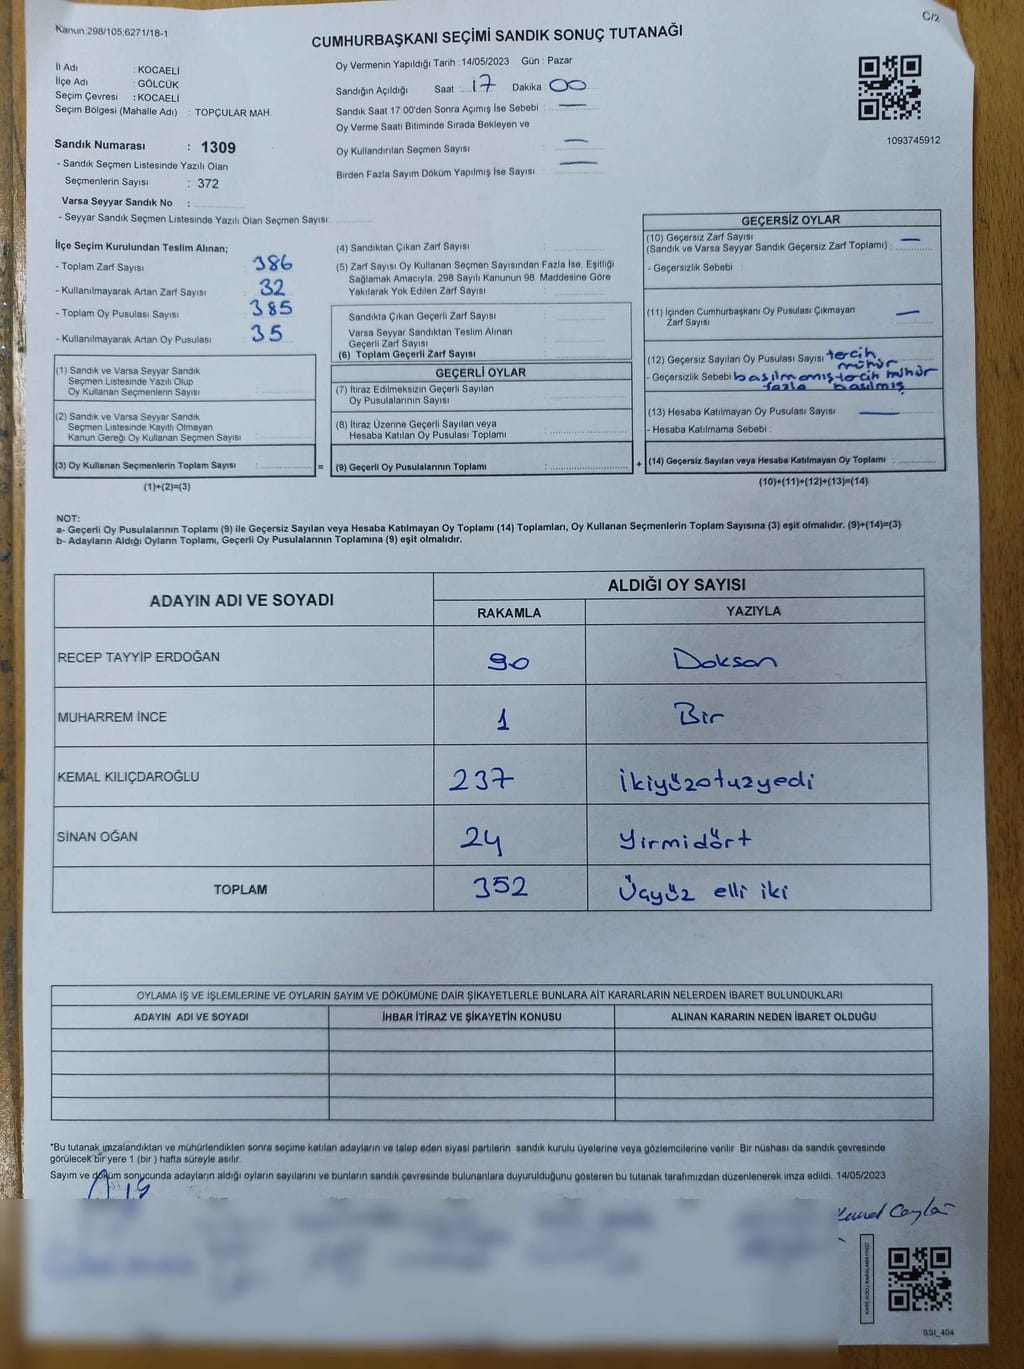 Kanun 298/105,6271/18-1
C/2
CUMHURBAŞKANI SEÇİMİ SANDIK SONUÇ TUTANAĞI
İl Adı : KOCAELİ
İlçe Adı : GÖLCÜK
Seçim Çevresi : KOCAELİ
Seçim Bölgesi (Mahalle Adı) : TOPÇULAR MAH.
Sandık Numarası : 1309
- Sandık Seçmen Listesinde Yazılı Olan
Seçmenlerin Sayısı : 372
Varsa Seyyar Sandık No :
- Seyyar Sandık Seçmen Listesinde Yazılı Olan Seçmen Sayısı:
Oy Vermenin Yapıldığı Tarih : 14/05/2023 Gün : Pazar
Sandığın Açıldığı Saat : 17 Dakika : 00
Sandık Saat 17:00'den Sonra Açımış İse Sebebi : —
Oy Verme Saati Bitiminde Sırada Bekleyen ve
Oy Kullandırılan Seçmen Sayısı : —
Birden Fazla Sayım Döküm Yapılmış İse Sayısı : —
1093745912
İlçe Seçim Kurulundan Teslim Alınan;
- Toplam Zarf Sayısı : 386
- Kullanılmayarak Artan Zarf Sayısı : 32
- Toplam Oy Pusulası Sayısı : 385
- Kullanılmayarak Artan Oy Pusulası : 35
(1) Sandık ve Varsa Seyyar Sandık
Seçmen Listesinde Yazılı Olup
Oy Kullanan Seçmenlerin Sayısı :
(2) Sandık ve Varsa Seyyar Sandık
Seçmen Listesinde Kayıtlı Olmayan
Kanun Gereği Oy Kullanan Seçmen Sayısı :
(3) Oy Kullanan Seçmenlerin Toplam Sayısı :
(1)+(2)=(3)
=
(4) Sandıktan Çıkan Zarf Sayısı :
(5) Zarf Sayısı Oy Kullanan Seçmen Sayısından Fazla İse, Eşitliği
Sağlamak Amacıyla, 298 Sayılı Kanunun 98. Maddesine Göre
Yakılarak Yok Edilen Zarf Sayısı :
Sandıkta Çıkan Geçerli Zarf Sayısı :
Varsa Seyyar Sandıktan Teslim Alınan
Geçerli Zarf Sayısı :
(6) Toplam Geçerli Zarf Sayısı :
GEÇERLİ OYLAR
(7) İtiraz Edilmeksizin Geçerli Sayılan
Oy Pusulalarının Sayısı :
(8) İtiraz Üzerine Geçerli Sayılan veya
Hesaba Katılan Oy Pusulası Toplamı :
(9) Geçerli Oy Pusulalarının Toplamı :
+
GEÇERSİZ OYLAR
(10) Geçersiz Zarf Sayısı
(Sandık ve Varsa Seyyar Sandık Geçersiz Zarf Toplamı) : —
- Geçersizlik Sebebi :
(11) İçinden Cumhurbaşkanı Oy Pusulası Çıkmayan
Zarf Sayısı : —
(12) Geçersiz Sayılan Oy Pusulası Sayısı : tercih
mühür
- Geçersizlik Sebebi : basılmamış-tercih mühür
fazla basılmış
(13) Hesaba Katılmayan Oy Pusulası Sayısı : —
- Hesaba Katılmama Sebebi :
(14) Geçersiz Sayılan veya Hesaba Katılmayan Oy Toplamı :
(10)+(11)+(12)+(13)=(14)
NOT:
a- Geçerli Oy Pusulalarının Toplamı (9) ile Geçersiz Sayılan veya Hesaba Katılmayan Oy Toplamı (14) Toplamları, Oy Kullanan Seçmenlerin Toplam Sayısına (3) eşit olmalıdır. (9)+(14)=(3)
b- Adayların Aldığı Oyların Toplamı, Geçerli Oy Pusulalarının Toplamına (9) eşit olmalıdır.
ADAYIN ADI VE SOYADI ALDIĞI OY SAYISI
RAKAMLA YAZIYLA
RECEP TAYYİP ERDOĞAN 90 Doksan
MUHARREM İNCE 1 Bir
KEMAL KILIÇDAROĞLU 237 İkiyüzotuzyedi
SİNAN OĞAN 24 Yirmidört
TOPLAM 352 Üçyüz elli iki
OYLAMA İŞ VE İŞLEMLERİNE VE OYLARIN SAYIM VE DÖKÜMÜNE DAİR ŞİKAYETLERLE BUNLARA AİT KARARLARIN NELERDEN İBARET BULUNDUKLARI
ADAYIN ADI VE SOYADI İHBAR İTİRAZ VE ŞİKAYETİN KONUSU ALINAN KARARIN NEDEN İBARET OLDUĞU
*Bu tutanak imzalandıktan ve mühürlendikten sonra seçime katılan adayların ve talep eden siyasi partilerin sandık kurulu üyelerine veya gözlemcilerine verilir. Bir nüshası da sandık çevresinde
görülecek bir yere 1 (bir) hafta süreyle asılır.
Sayım ve döküm sonucunda adayların aldığı oyların sayılarını ve bunların sandık çevresinde bulunanlara duyurulduğunu gösteren bu tutanak tarafımızdan düzenlenerek imza edildi. 14/05/2023
KARE KODU KARALAMAYINIZ!
SSI_404